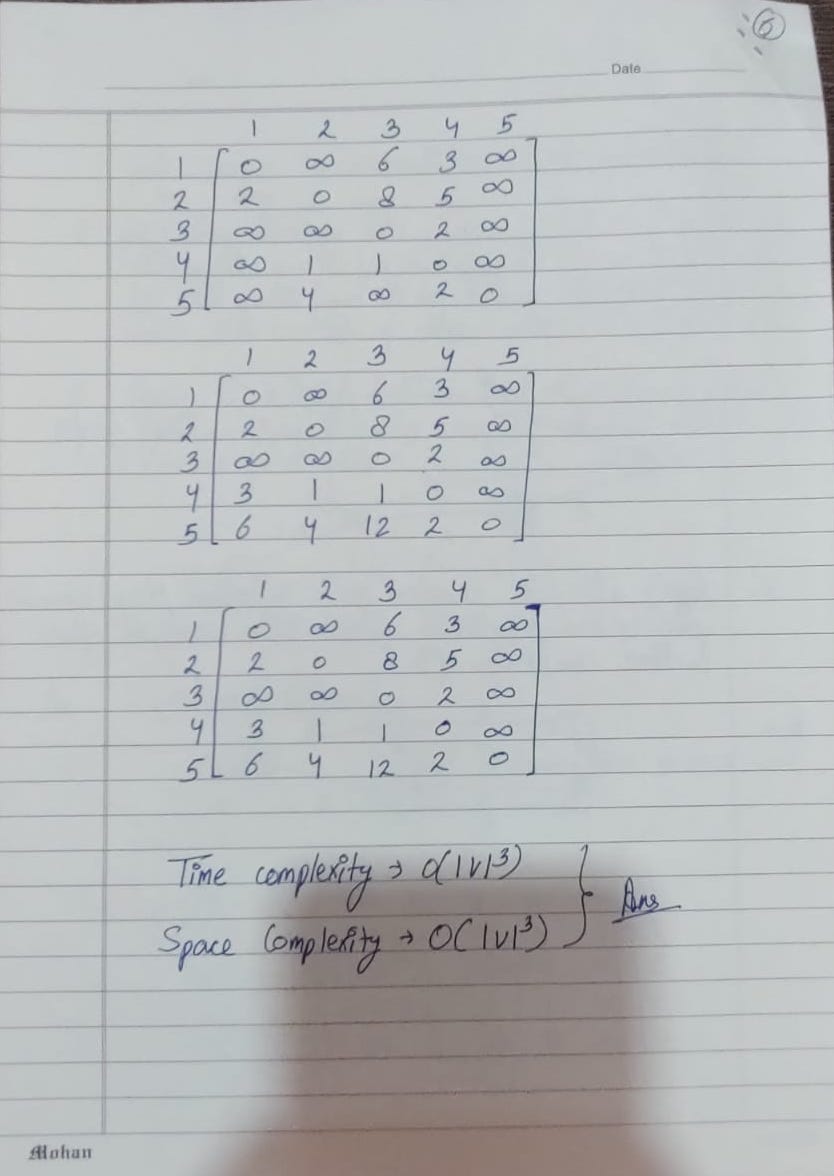 6
Date
1 2 3 4 5
1 0 ∞ 6 3 ∞
2 2 0 8 5 ∞
3 ∞ ∞ 0 2 ∞
4 ∞ 1 1 0 ∞
5 ∞ 4 ∞ 2 0
1 2 3 4 5
1 0 ∞ 6 3 ∞
2 2 0 8 5 ∞
3 ∞ ∞ 0 2 ∞
4 3 1 1 0 ∞
5 6 4 12 2 0
1 2 3 4 5
1 0 ∞ 6 3 ∞
2 2 0 8 5 ∞
3 ∞ ∞ 0 2 ∞
4 3 1 1 0 ∞
5 6 4 12 2 0
Time complexity → O(|V|³)
Space Complexity → O(|V|³) } Ans
Mohan